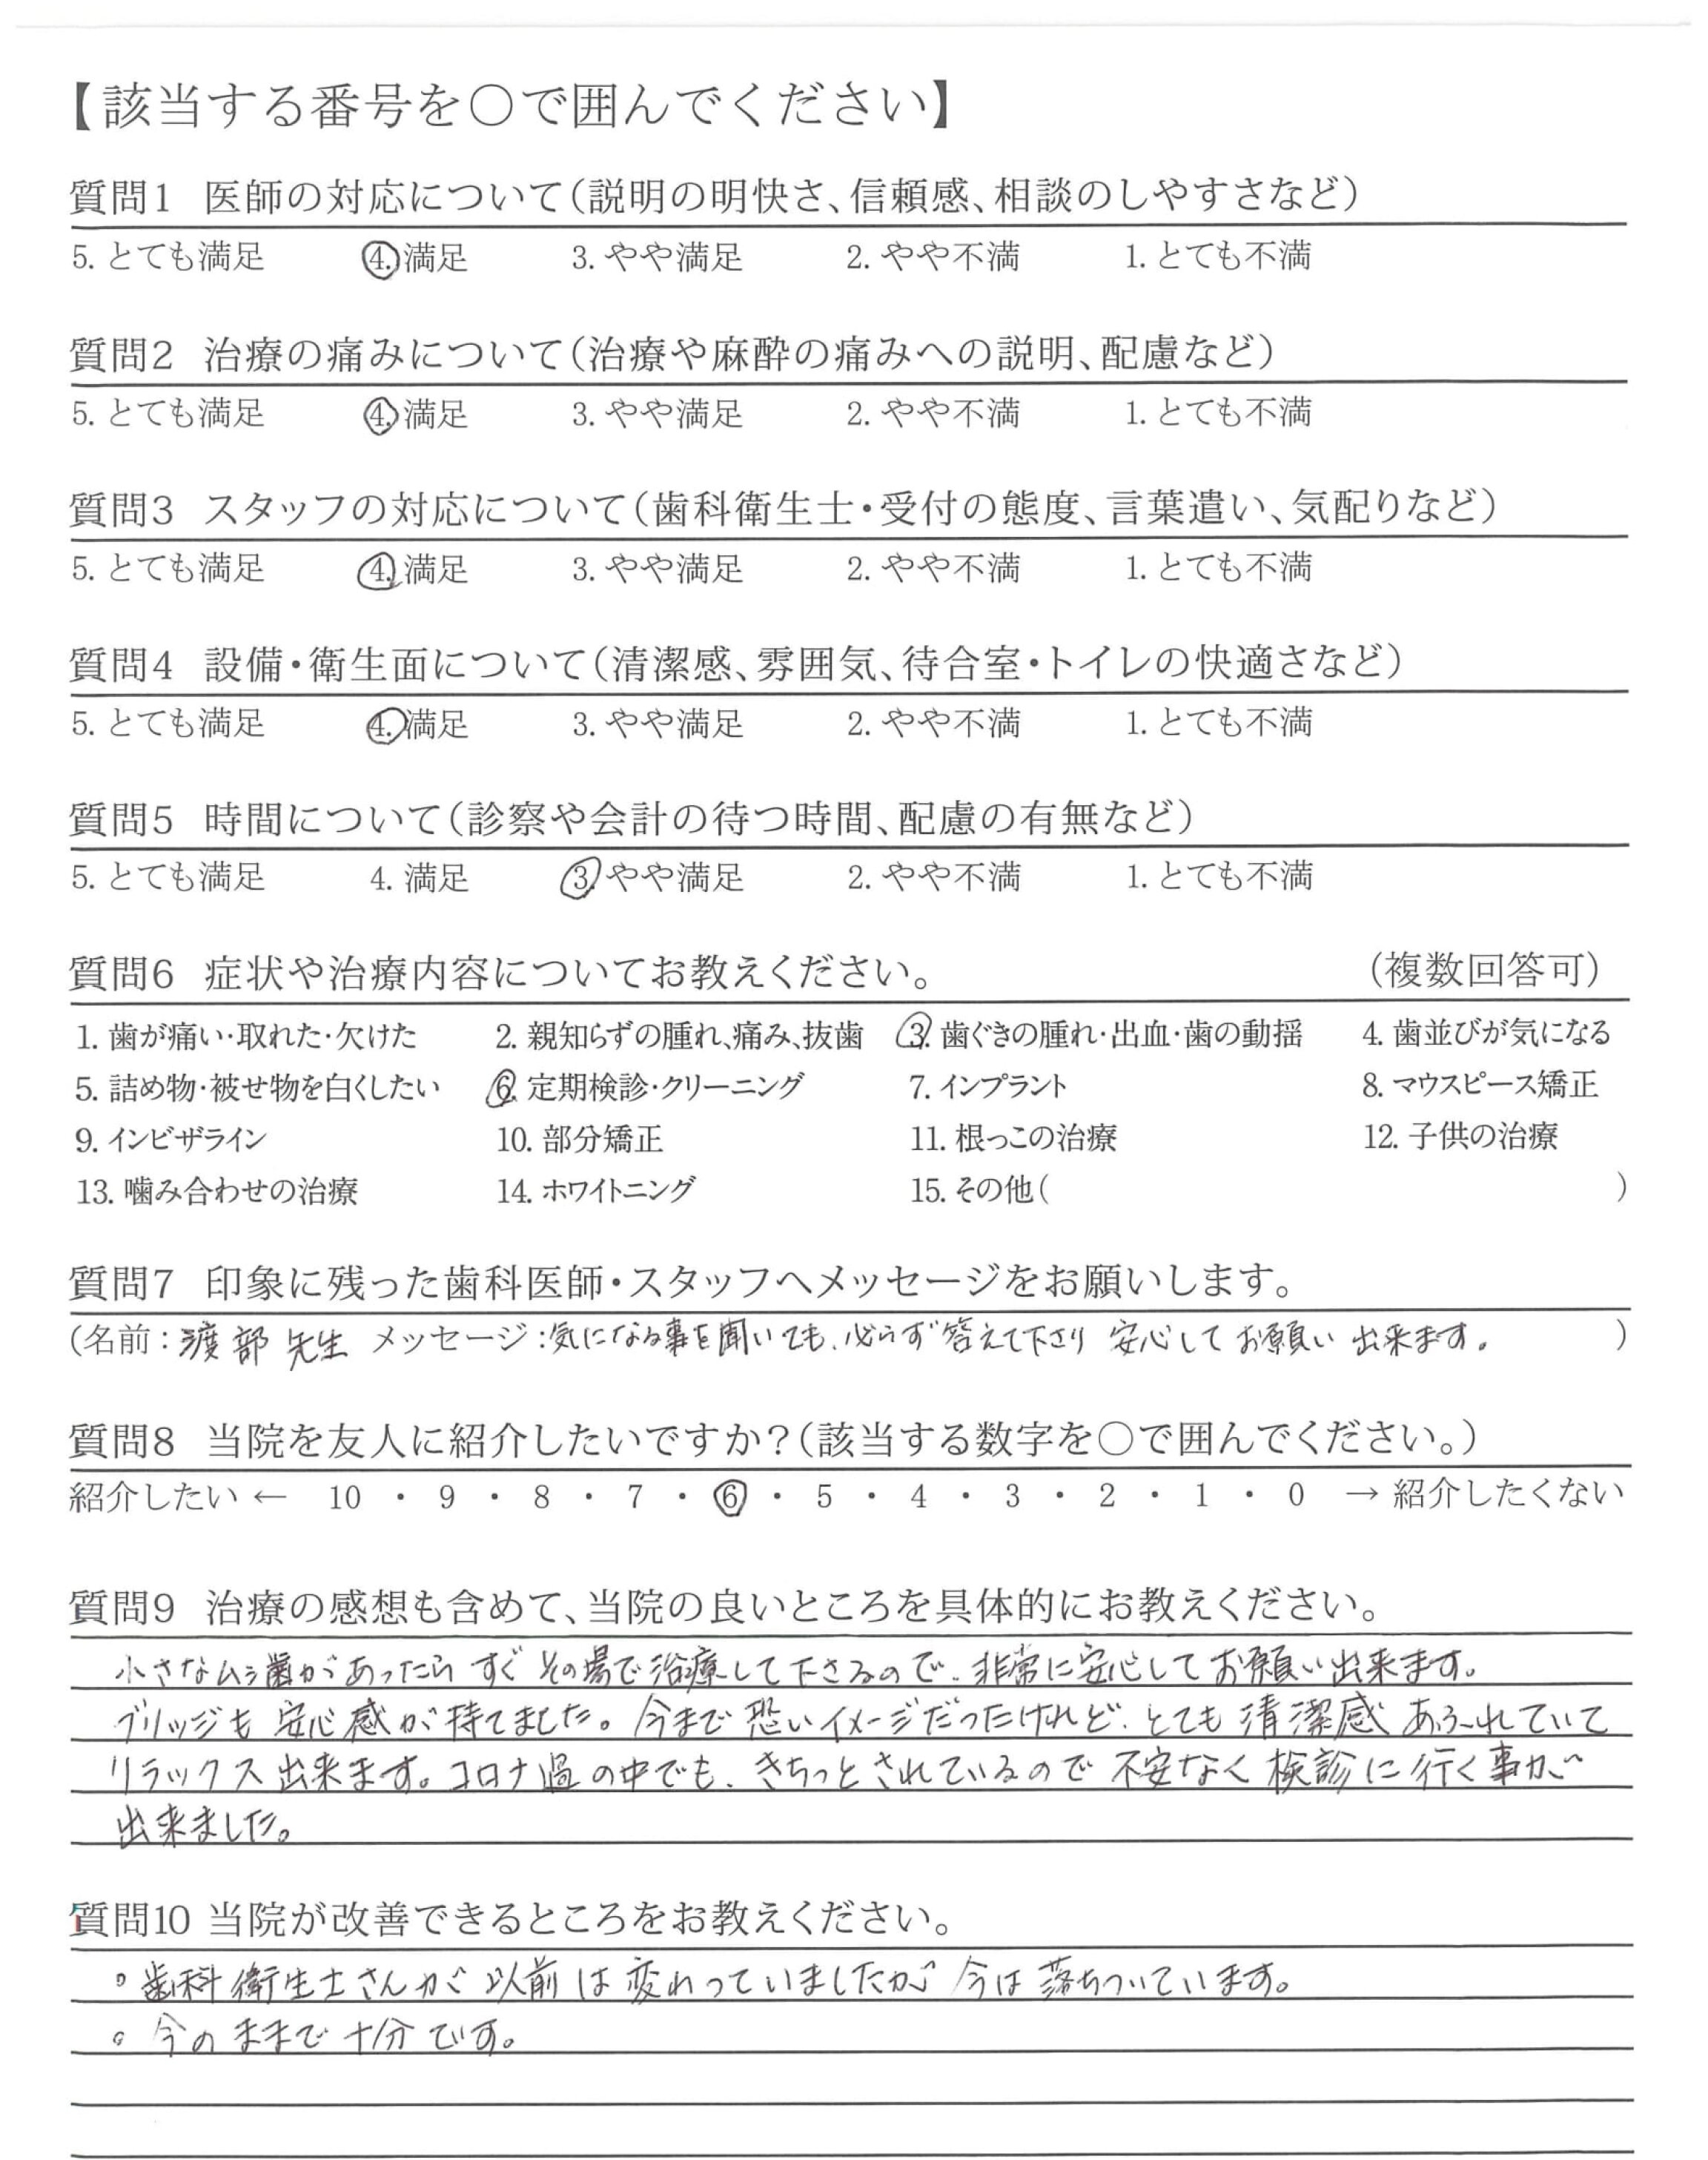 【該当する番号を○で囲んでください】
質問1 医師の対応について(説明の明快さ、信頼感、相談のしやすさなど)
5. とても満足 4. 満足 3. やや満足 2. やや不満 1. とても不満
質問2 治療の痛みについて(治療や麻酔の痛みへの説明、配慮など)
5. とても満足 4. 満足 3. やや満足 2. やや不満 1. とても不満
質問3 スタッフの対応について(歯科衛生士・受付の態度、言葉遣い、気配りなど)
5. とても満足 4. 満足 3. やや満足 2. やや不満 1. とても不満
質問4 設備・衛生面について(清潔感、雰囲気、待合室・トイレの快適さなど)
5. とても満足 4. 満足 3. やや満足 2. やや不満 1. とても不満
質問5 時間について(診察や会計の待つ時間、配慮の有無など)
5. とても満足 4. 満足 3. やや満足 2. やや不満 1. とても不満
質問6 症状や治療内容についてお教えください。 (複数回答可)
1. 歯が痛い・取れた・欠けた 2. 親知らずの腫れ、痛み、抜歯 3. 歯ぐきの腫れ・出血・歯の動揺 4. 歯並びが気になる
5. 詰め物・被せ物を白くしたい 6. 定期検診・クリーニング 7. インプラント 8. マウスピース矯正
9. インビザライン 10. 部分矯正 11. 根っこの治療 12. 子供の治療
13. 噛み合わせの治療 14. ホワイトニング 15. その他( )
質問7 印象に残った歯科医師・スタッフへメッセージをお願いします。
(名前：渡部 先生 メッセージ：気になる事を聞いても、必らず答えて下さり 安心して お願い 出来ます。 )
質問8 当院を友人に紹介したいですか？(該当する数字を○で囲んでください。)
紹介したい ← 10 ・ 9 ・ 8 ・ 7 ・ 6 ・ 5 ・ 4 ・ 3 ・ 2 ・ 1 ・ 0 → 紹介したくない
質問9 治療の感想も含めて、当院の良いところを具体的にお教えください。
小さなムシ歯があったら すぐ その場で治療して下さるので、非常に安心して お願い出来ます。
ブリッジも 安心感が持てました。今まで 恐いイメージだったけれど、とても 清潔感 あふれていて
リラックス出来ます。コロナ過の中でも、きちっとされているので 不安なく 検診に行く事が
出来ました。
質問10 当院が改善できるところをお教えください。
。歯科衛生士さんが 以前は 変わっていましたが 今は 落ちついています。
。今のままで 十分です。